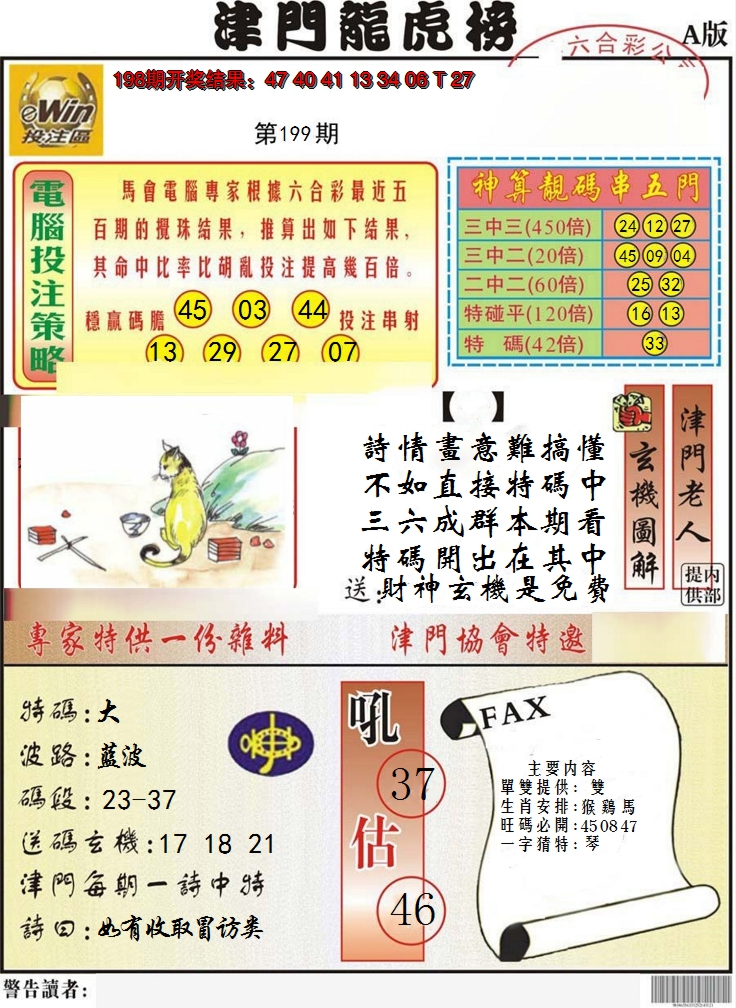 津門龍虎榜
A版
六合彩公
198期开奖结果: 47 40 41 13 34 06 T 27
eWin
投注區
第199期
電腦投注策略
馬會電腦專家根據六合彩最近五
百期的攪珠结果，推算出如下结果，
其命中比率比胡亂投注提高幾百倍。
穩贏碼膽 45 03 44 投注串射
13 29 27 07
神算靚碼串五門
三中三(450倍) 24 12 27
三中二(20倍) 45 09 04
二中二(60倍) 25 32
特碰平(120倍) 16 13
特 碼(42倍) 33
【 】
詩情畫意難搞懂
不如直接特碼中
三六成群本期看
特碼開出在其中
送:財神玄機是免費
玄機圖解
津門老人
内部提供
專家特供一份雜料
津門協會特邀
特碼:大
波路:藍波
碼段: 23-37
送碼玄機:17 18 21
津門每期一詩中特
詩曰:如有收取冒访类
吼
37
估
46
FAX
主要内容
單雙提供: 雙
生肖安排:猴鷄馬
旺碼必開:45 08 47
一字猜特:琴
警告讀者: